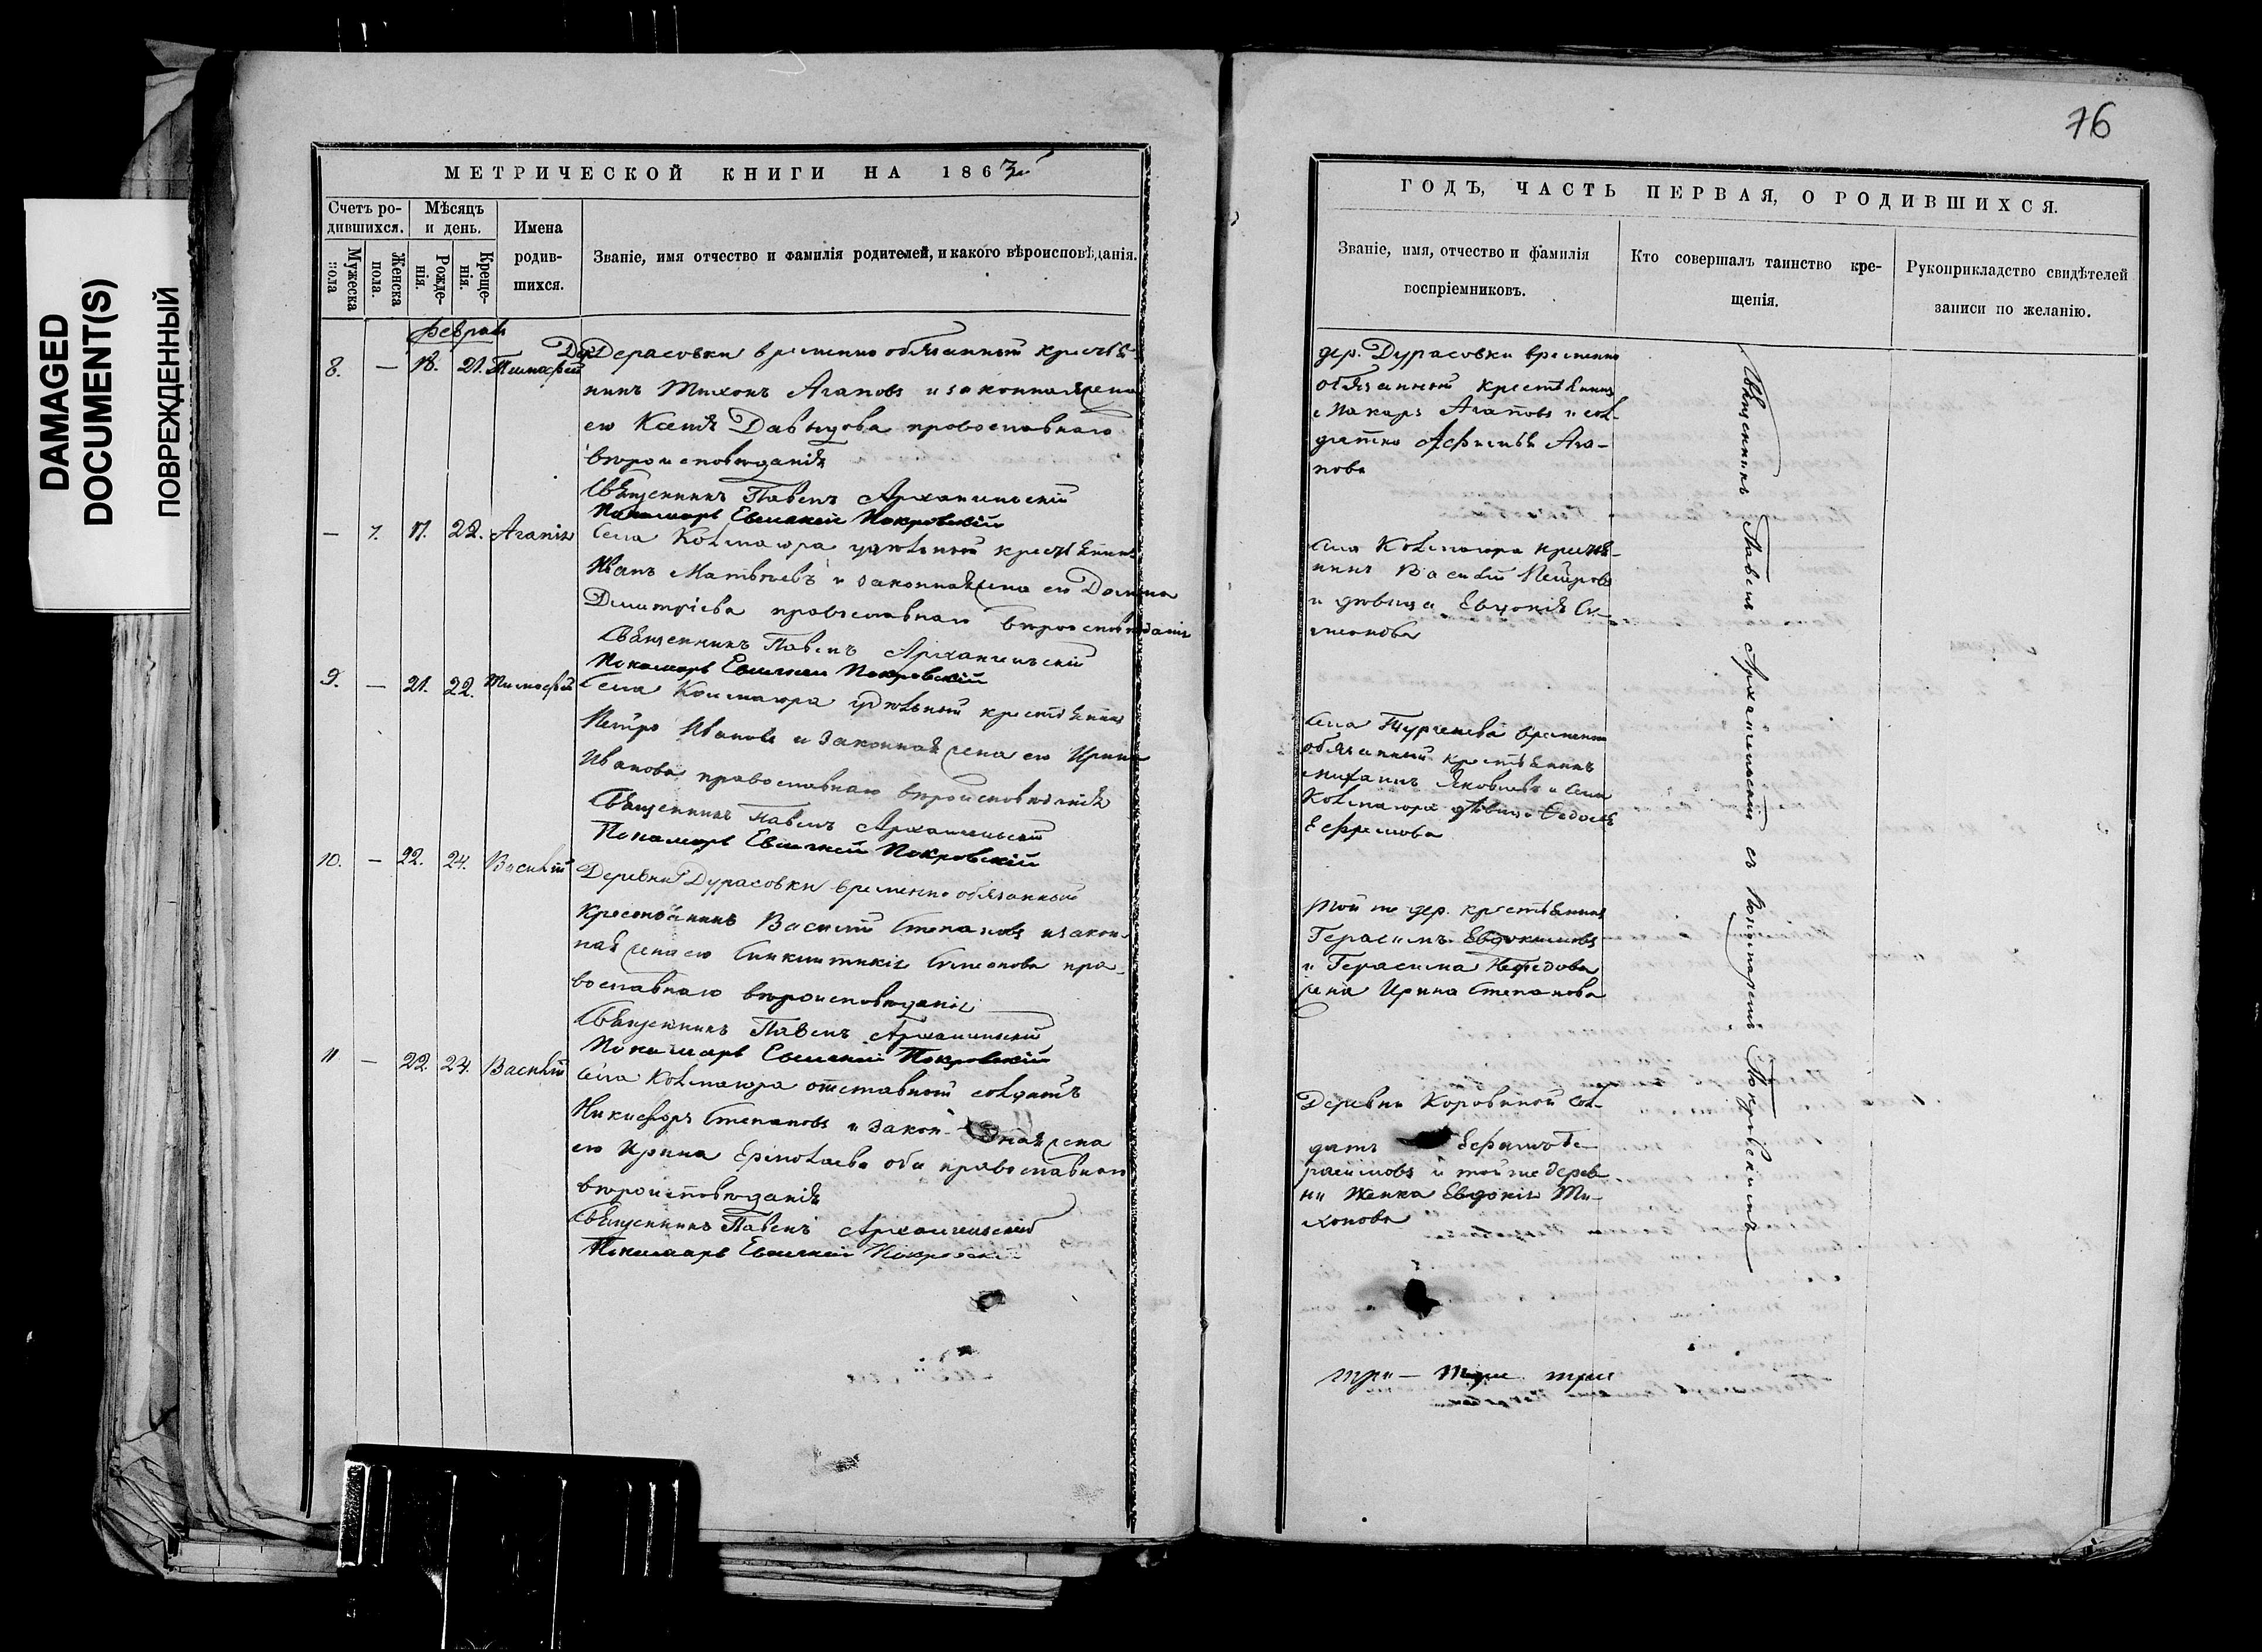 DAMAGED
DOCUMENT(S)
ПОВРЕЖДЕННЫЙ
МЕТРИЧЕСКОЙ КНИГИ НА 1863й
Счетъ ро-
дившихся.
Мужеска
пола
Женска
пола.
Мѣсяцъ
и день.
Рожде-
нія.
Креще-
нія.
Имена
родив-
шихся.
Званіе, имя отчество и фамилія родителей, и какого вѣроисповѣданія.
8. — 18. 21. Тимофей
временно обязанный крестья-
нинъ Тихонъ Агаповъ и законная жена
его Ксенія Давыдова православнаго
вѣроисповѣданія
Священникъ Павелъ Архангельскій
Пономарь Покровскій
— 7. 17. 22. Агапія
Села удѣльный крестьянинъ
Иванъ Матвѣевъ и законная жена его Домна
Димитріева православнаго вѣроисповѣданія
Священникъ Павелъ Архангельскій
Пономарь Покровскій
9. — 21. 22. Тимофей
Села удѣльный крестьянинъ
Петръ Ивановъ и законная жена его Ирина
Иванова православнаго вѣроисповѣданія
Священникъ Павелъ Архангельскій
Пономарь Покровскій
10. — 22. 24. Василій
Деревни Дурасовки временно обязанный
крестьянинъ Василій Степановъ и закон-
ная жена его Симеонова пра-
вославнаго вѣроисповѣданія
Священникъ Павелъ Архангельскій
Пономарь Покровскій
11 — 22. 24. Василій
Села отставной солдатъ
Никифоръ Степановъ и закон- ная жена
его Ирина Ермолаева оба православнаго
вѣроисповѣданія
Священникъ Павелъ Архангельскій
Пономарь Покровскій
76
ГОДЪ, ЧАСТЬ ПЕРВАЯ, О РОДИВШИХСЯ.
Званіе, имя, отчество и фамилія
воспріемниковъ.
Кто совершалъ таинство кре-
щенія.
Рукоприкладство свидѣтелей
записи по желанію.
дер. Дурасовки временно
обязанный крестьянинъ
Макаръ Агаповъ и сол-
датка Афимья Ага-
пова
Села крестья-
нинъ Василій Петровъ
и дѣвица Евдокія Си-
меонова
Села Тургенева временно
обязанный крестьянинъ
Михаилъ Яковлевъ и села
дѣвица Ѳедосья
Ефремова
той же дер. крестьянинъ
Герасимъ Евдокимовъ
и Герасима Нефедова
жена Ирина Степанова
Деревни Коровиной сол-
датъ Ефимъ Ге-
расимовъ и той же дерев-
ни женка Евдокія Ти-
хонова
Священникъ Павелъ Архангельскій съ Пономаремъ Покровскимъ
три — три три